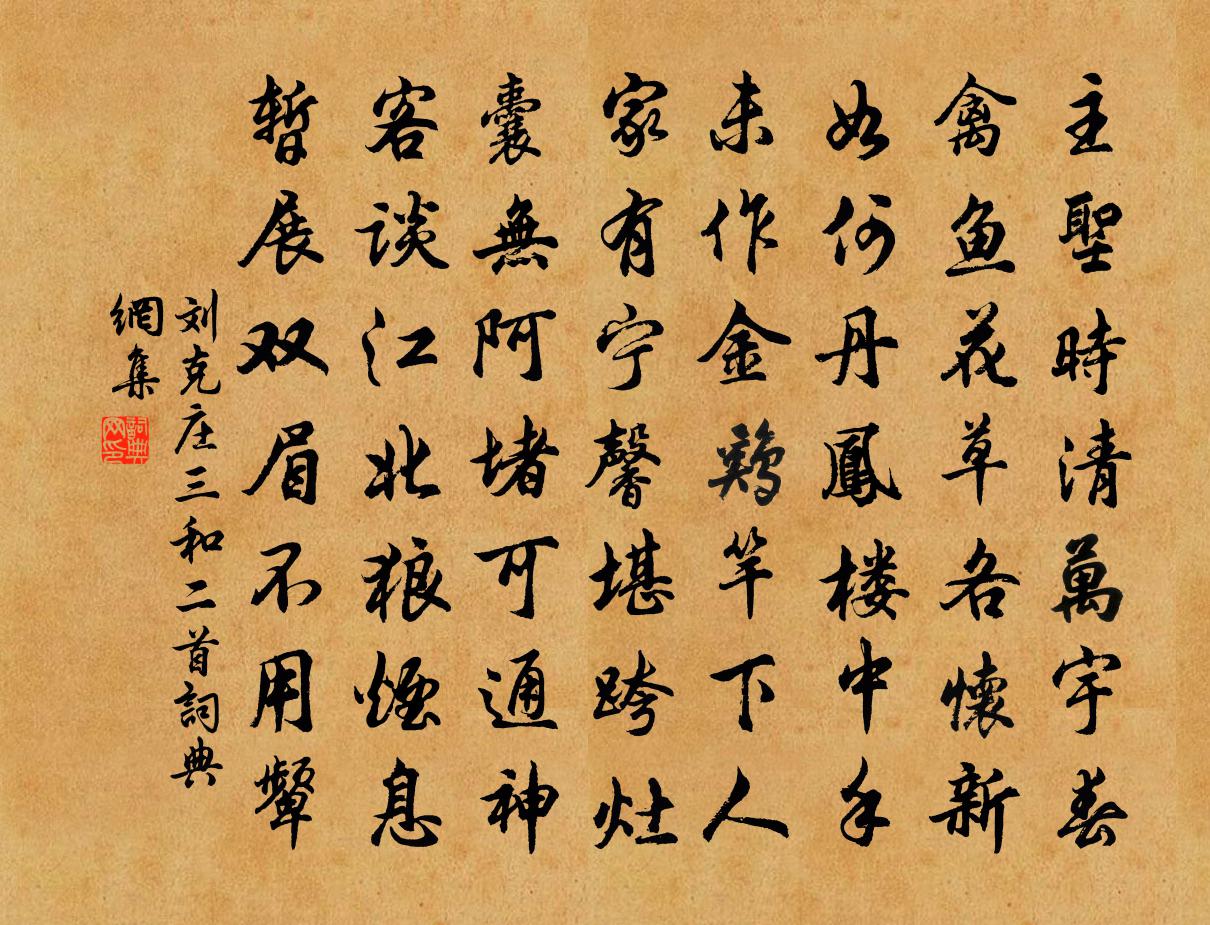 主聖時清萬宇春
禽鱼花草各懷新
如何丹鳳楼中手
未作金鷄竿下人
家有宁馨堪跨灶
囊無阿堵可通神
客談江北狼煙息
暫展双眉不用顰
刘克庄三和二首詞典
網集
詞典
网印